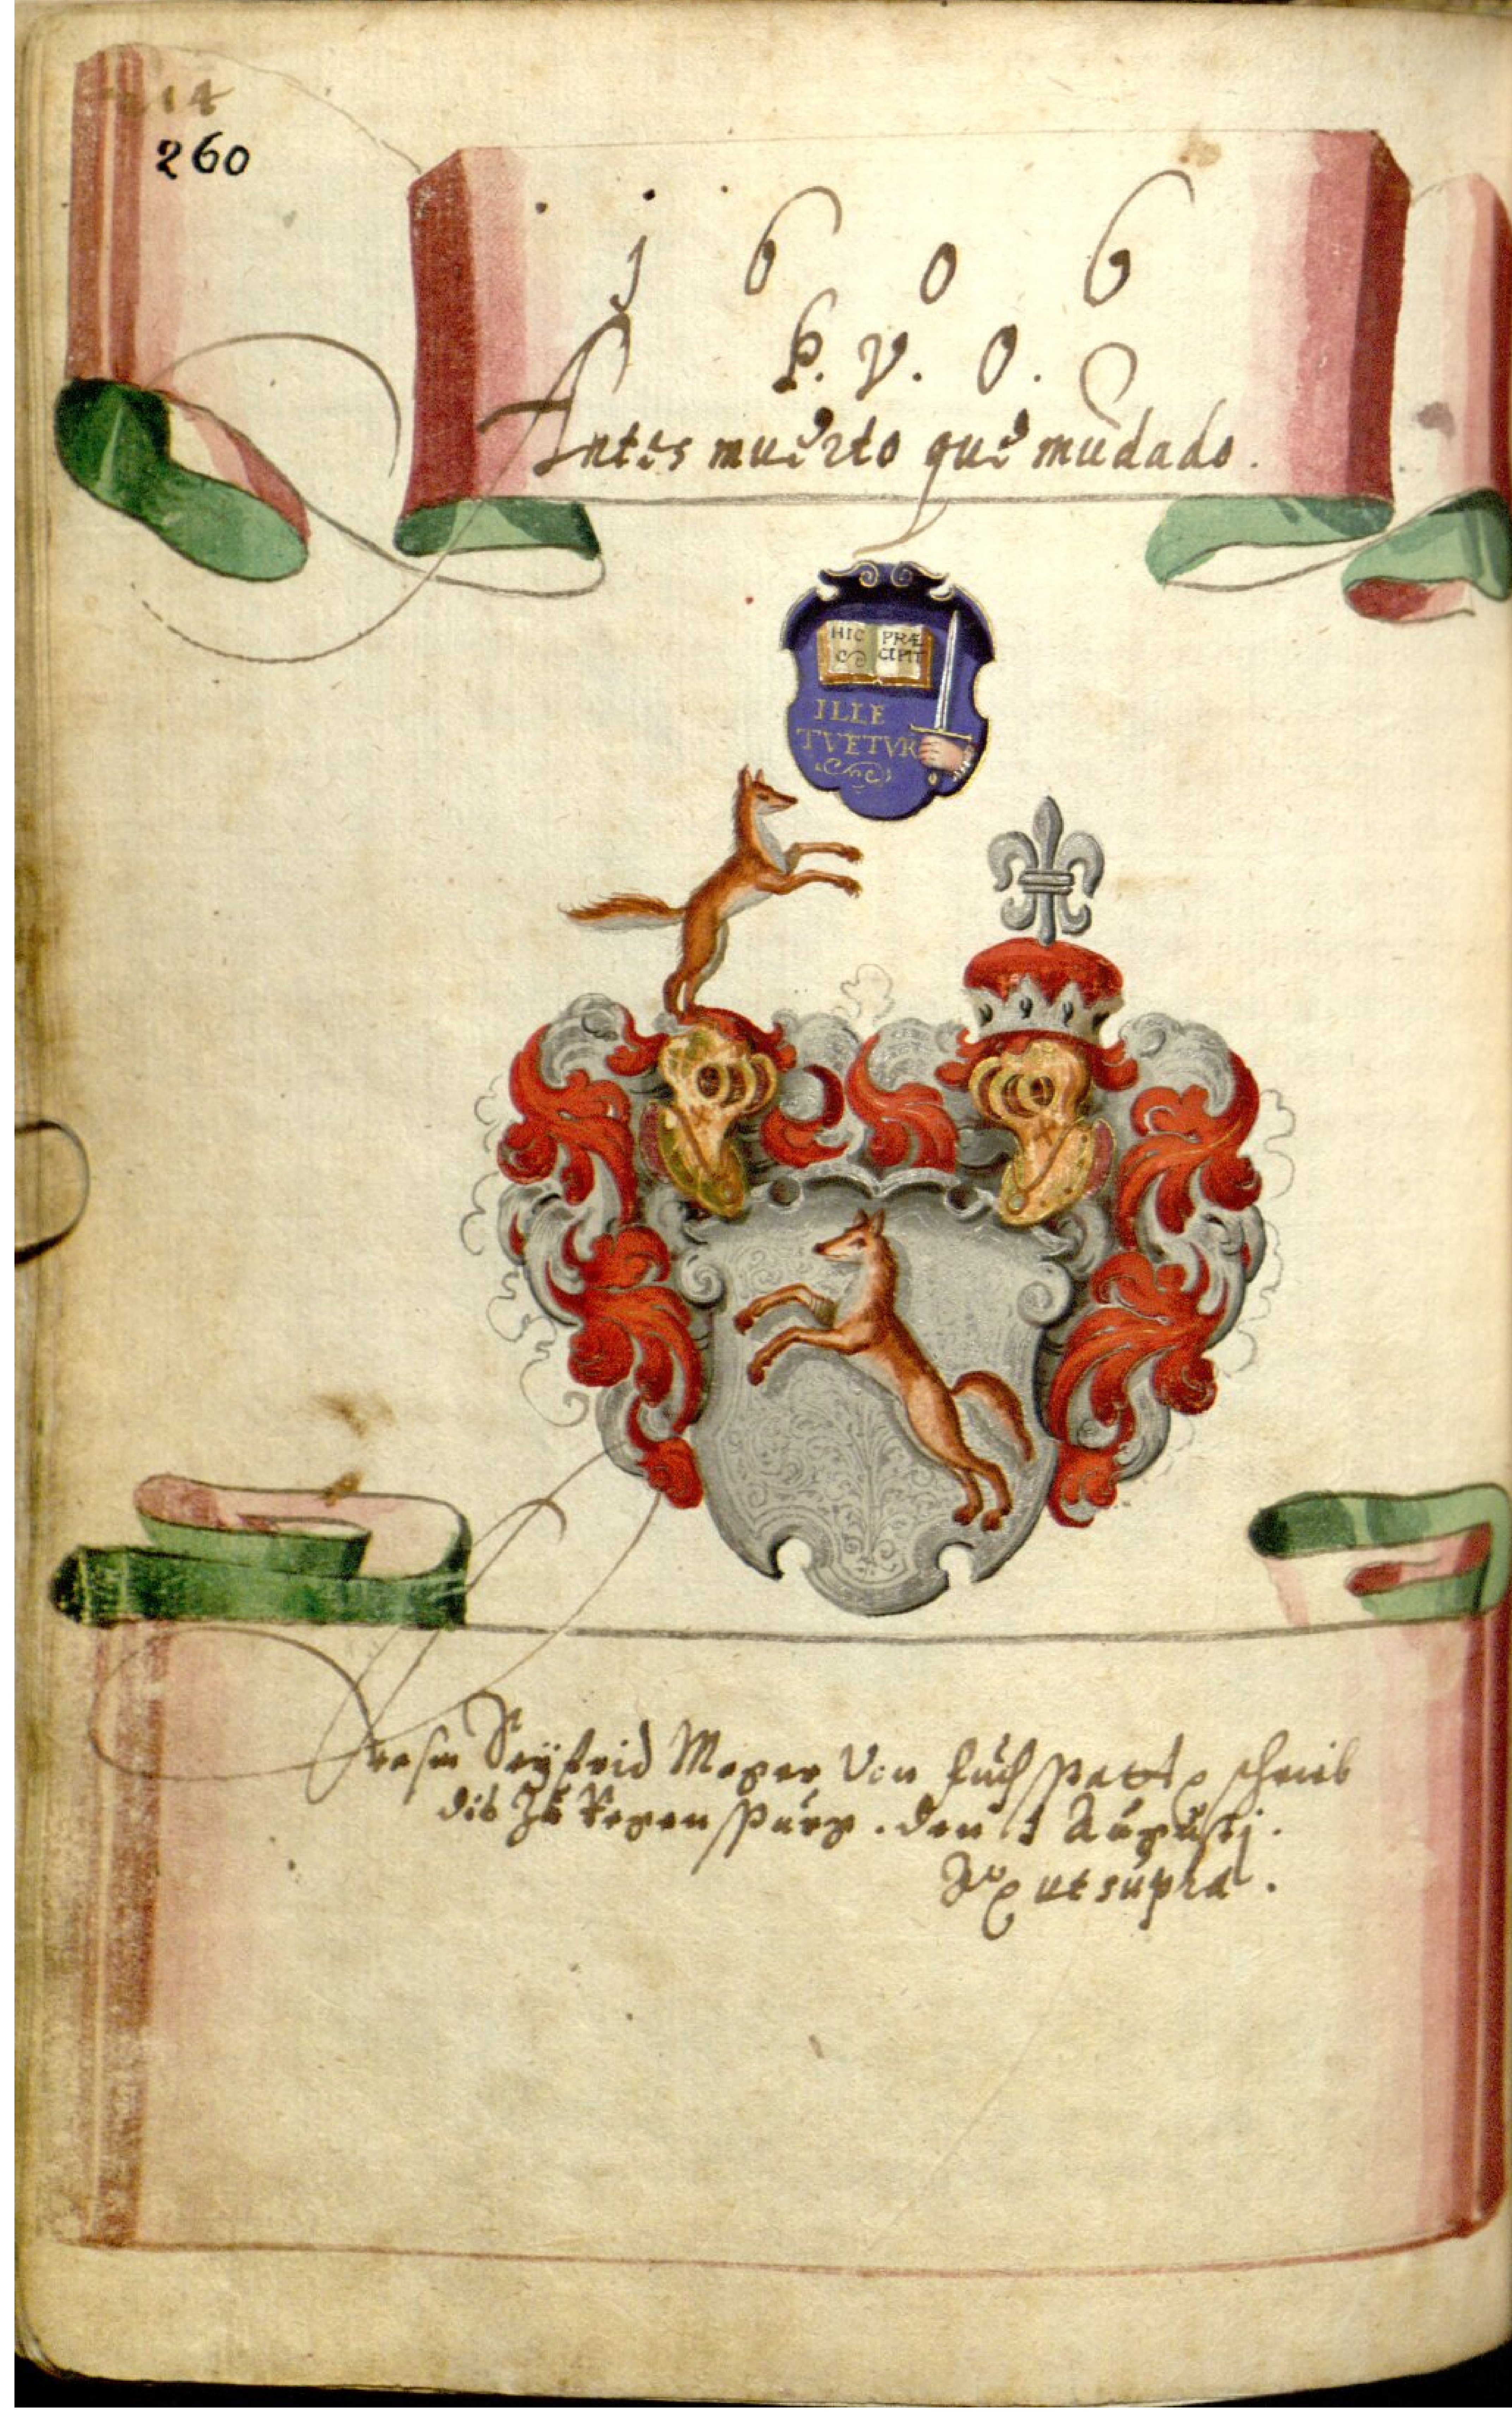 14
260
1 6 0 6
P. V. O.
Antes muerto que mudado.
HIC PRÆ
CIPIT
ILLE
TVETVR
Seÿfrid Moger Von fuchsspatt schrieb
dis Zu Regenspurg. den 1 Augustj.
Aº ut supra.